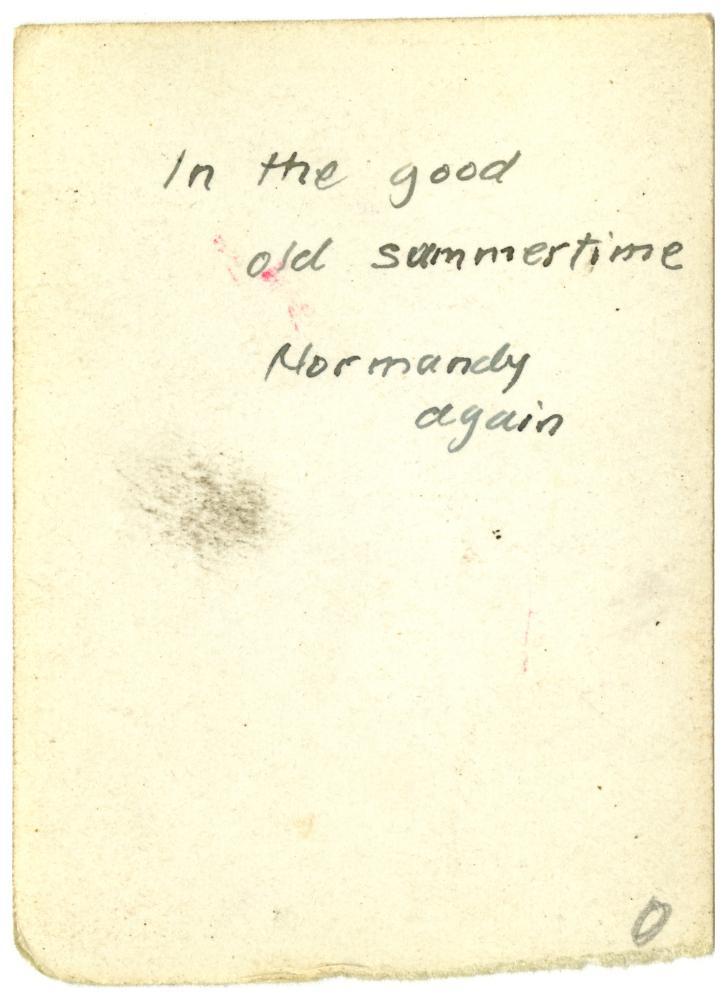 In the good
old summertime
Normandy
again
0